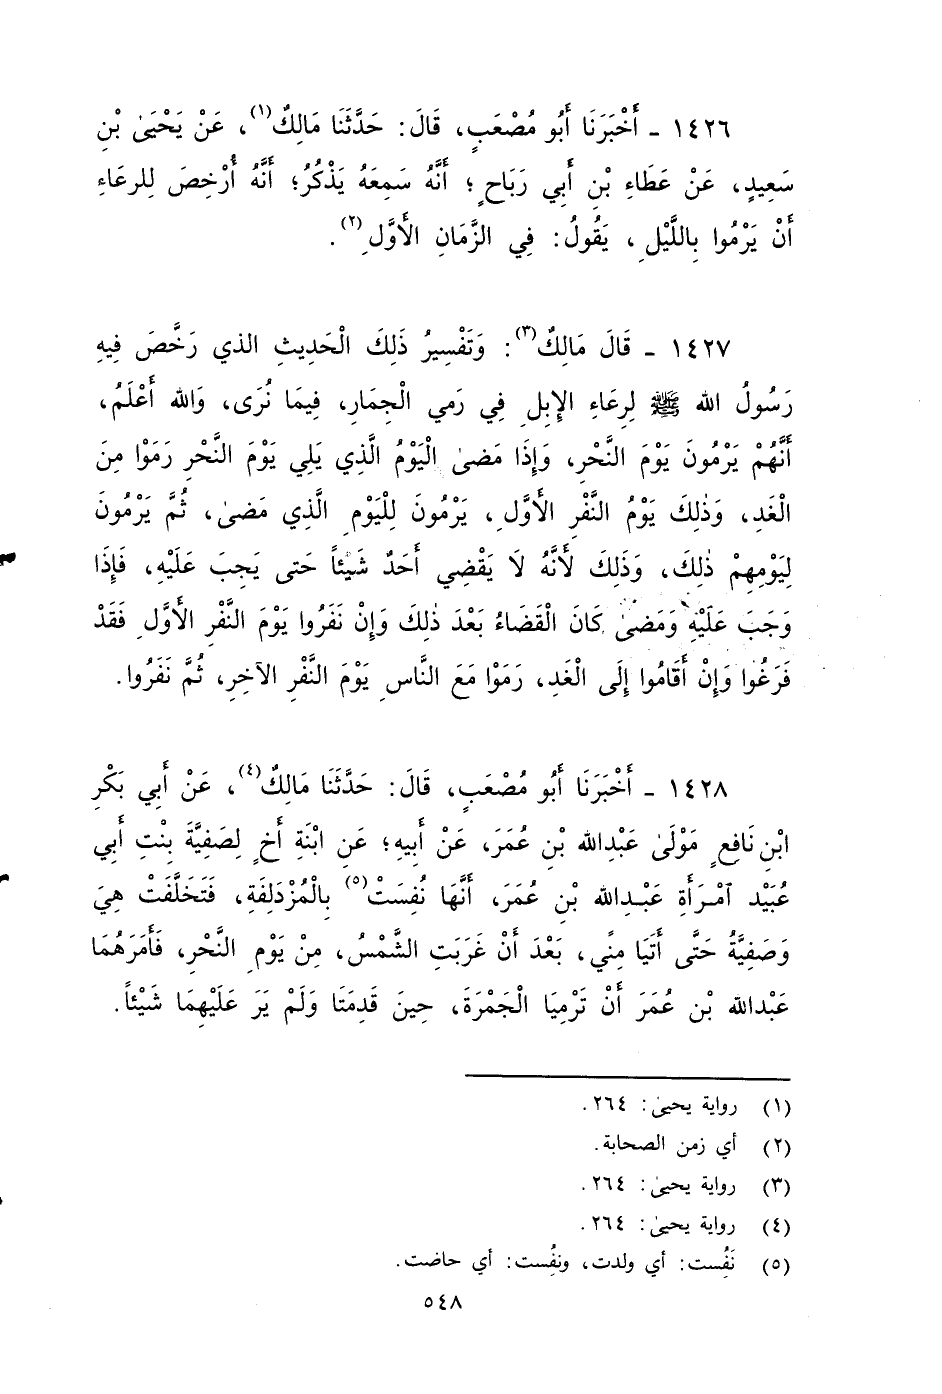 ١٤٢٦ - أَخْبَرَنَا أَبُو مُصْعَبٍ، قَالَ: حَدَّثَنَا مَالِكٌ(١)، عَنْ يَحْيَىٰ بْنِ
سَعِيدٍ، عَنْ عَطَاءِ بْنِ أَبِي رَبَاحٍ؛ أَنَّهُ سَمِعَهُ يَذْكُرُ؛ أَنَّهُ أُرْخِصَ لِلرعَاءِ
أَنْ يَرْمُوا بِاللَّيْلِ، يَقُولُ: فِي الزَّمَانِ الأَوَّلِ(٢).
١٤٢٧ - قَالَ مَالِكٌ(٣): وَتَفْسِيرُ ذَلِكَ الْحَدِيثِ الذي رَخَّصَ فِيهِ
رَسُولُ الله ﷺ لِرعَاءِ الإِبِلِ فِي رَمي الْجِمَارِ، فِيمَا نُرَى، وَالله أَعْلَمُ،
أَنَّهُمْ يَرْمُونَ يَوْمَ النَّحْرِ، وَإِذَا مَضىٰ الْيَوْمُ الَّذِي يَلِي يَوْمَ النَّحْرِ رَمَوْا مِنَ
الْغَدِ، وَذٰلِكَ يَوْمُ النَّفْرِ الأَوَّلِ، يَرْمُونَ لِلْيَوْمِ الَّذِي مَضىٰ، ثُمَّ يَرْمُونَ
لِيَوْمِهِمْ ذٰلِكَ، وَذَلِكَ لأَنَّهُ لاَ يَقْضِي أَحَدٌ شَيْئاً حَتى يَجِبَ عَلَيْهِ، فَإِذَا
وَجَبَ عَلَيْهِ وَمَضىٰ كَانَ الْقَضَاءُ بَعْدَ ذٰلِكَ وَإِنْ نَفَرُوا يَوْمَ النَّفْرِ الأَوَّلِ فَقَدْ
فَرَغُوا وَإِنْ أَقَامُوا إِلَى الْغَدِ، رَمَوْا مَعَ النَّاسِ يَوْمَ النَّفْرِ الآخِرِ، ثُمَّ نَفَرُوا.
١٤٢٨ - أَخْبَرَنَا أَبُو مُصْعَبٍ، قَالَ: حَدَّثَنَا مَالِكٌ(٤)، عَنْ أَبِي بَكْرِ
ابْنِ نَافِعٍ مَوْلَىٰ عَبْدِالله بْنِ عُمَرَ، عَنْ أَبِيهِ؛ عَنِ ابْنَةِ أَخٍ لِصَفِيَّةَ بِنْتِ أَبِي
عُبَيْد ٱمْرَأَةِ عَبْدِالله بْنِ عُمَرَ، أَنَّهَا نُفِسَتْ(٥) بِالْمُزْدَلِفَةِ، فَتَخَلَّفَتْ هِيَ
وَصَفِيَّةُ حَتَّى أَتَيَا مِنًي، بَعْدَ أَنْ غَرَبَتِ الشَّمْسُ، مِنْ يَوْمِ النَّحْرِ، فَأَمَرَهُمَا
عَبْدالله بْن عُمَرَ أَنْ تَرْمِيَا الْجَمْرَةَ، حِينَ قَدِمَتَا وَلَمْ يَرَ عَلَيْهِمَا شَيْئاً.
(١) رواية يحيىٰ: ٢٦٤.
(٢) أي زمن الصحابة.
(٣) رواية يحيىٰ: ٢٦٤.
(٤) رواية يحيىٰ: ٢٦٤.
(٥) نَفُست: أي ولدت، ونفُِست: أي حاضت.
٥٤٨